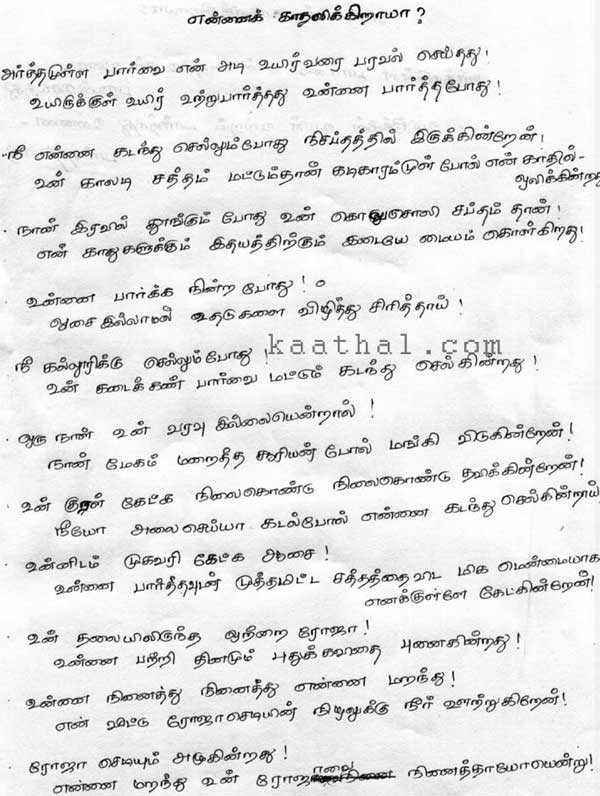 என்னைக் காதலிக்கிறாயா?
அர்த்தமுள்ள பார்வை என் அடி உயிர்வரை பரவல் செய்தது!
உயிருக்குள் உயிர் உற்றுபார்த்தது உன்னை பார்த்தபோது!
நீ என்னை கடந்து செல்லும்போது நிசப்தத்தில் இருக்கின்றேன்!
உன் காலடி சத்தம் மட்டும்தான் கடிகாரம்முள் போல் என் காதில்-
ஒலிக்கின்றது
நான் இரவில் தூங்கும் போது உன் கொலுசொலி சப்தம் தான்!
என் காதுகளுக்கும் இதயத்திற்கும் இடையே மையம் கொள்கிறது!
உன்னை பார்க்க நின்ற போது!
ஓசை இல்லாமல் உதடுகளை விழித்து சிரித்தாய்!
kaathal.com
நீ கல்லூரிக்கு செல்லும்போது!
உன் கடைக்கண் பார்வை மட்டும் கடந்து செல்கின்றது!
ஒரு நாள் உன் வரவு இல்லையென்றால்!
நான் மேகம் மறைத்த சூரியன் போல் மங்கி விடுகின்றேன்!
உன் குரல் கேட்க நிலைகொண்டு நிலைகொண்டு தவிக்கின்றேன்!
நீயோ அலைசெய்யா கடல்போல் என்னை கடந்து செல்கின்றாய்
உன்னிடம் முகவரி கேட்க ஆசை!
உன்னை பார்த்தவுடன் முத்தமிட்ட சத்தத்தைவிட மிக மென்மையாக
எனக்குள்ளே கேட்கின்றேன்!
உன் தலையிலிருந்த ஒற்றை ரோஜா!
உன்னை பற்றி தினமும் புதுக்கவிதை புனைகின்றது!
உன்னை நினைத்து நினைத்து என்னை மறந்து!
என் வீட்டு ரோஜாசெடியின் நிழலுக்கு நீர் ஊற்றுகிறேன்!
ரோஜா செடியும் அழுகின்றது!
என்னை மறந்து உன் ரோஜாவை நினைத்தாயோயென்று!